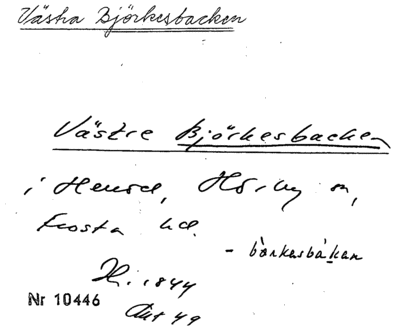 Västra Björkesbacken
Västre Björkesbacken
i Hörby sn,
Frosta hd.
- börkesbakan
H. 1844
Nr 10446
Akt 49